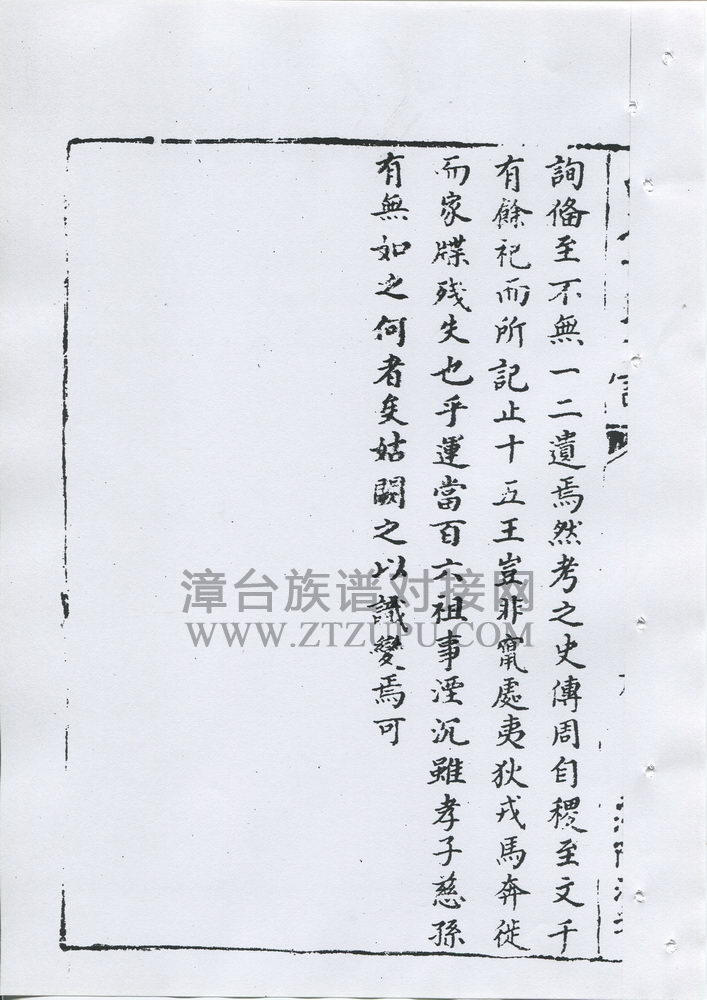 詢俻至不無一二遺焉然考之史傳周自稷至文千
有餘祀而所記止十五王豈非竄處夷狄戎馬奔徙
而家牒殘失也乎運當百六祖事湮沉雖孝子慈孫
有無如之何者矣姑闕之以識變焉可
漳台族谱对接网
WWW.ZTZUPU.COM